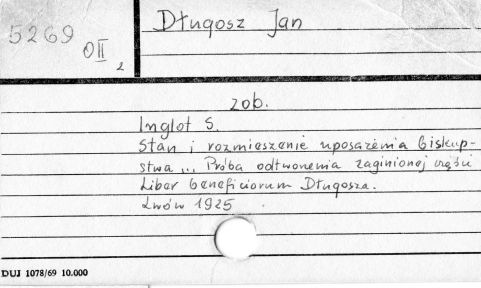 Długosz Jan
5269
OII
2
zob.
Inglot S.
Stan i rozmieszenie uposażenia biskup-
stwa ... Próba odtworzenia zaginionej części
Liber beneficiorum Długosza.
Lwów 1925
DUJ 1078/69 10.000